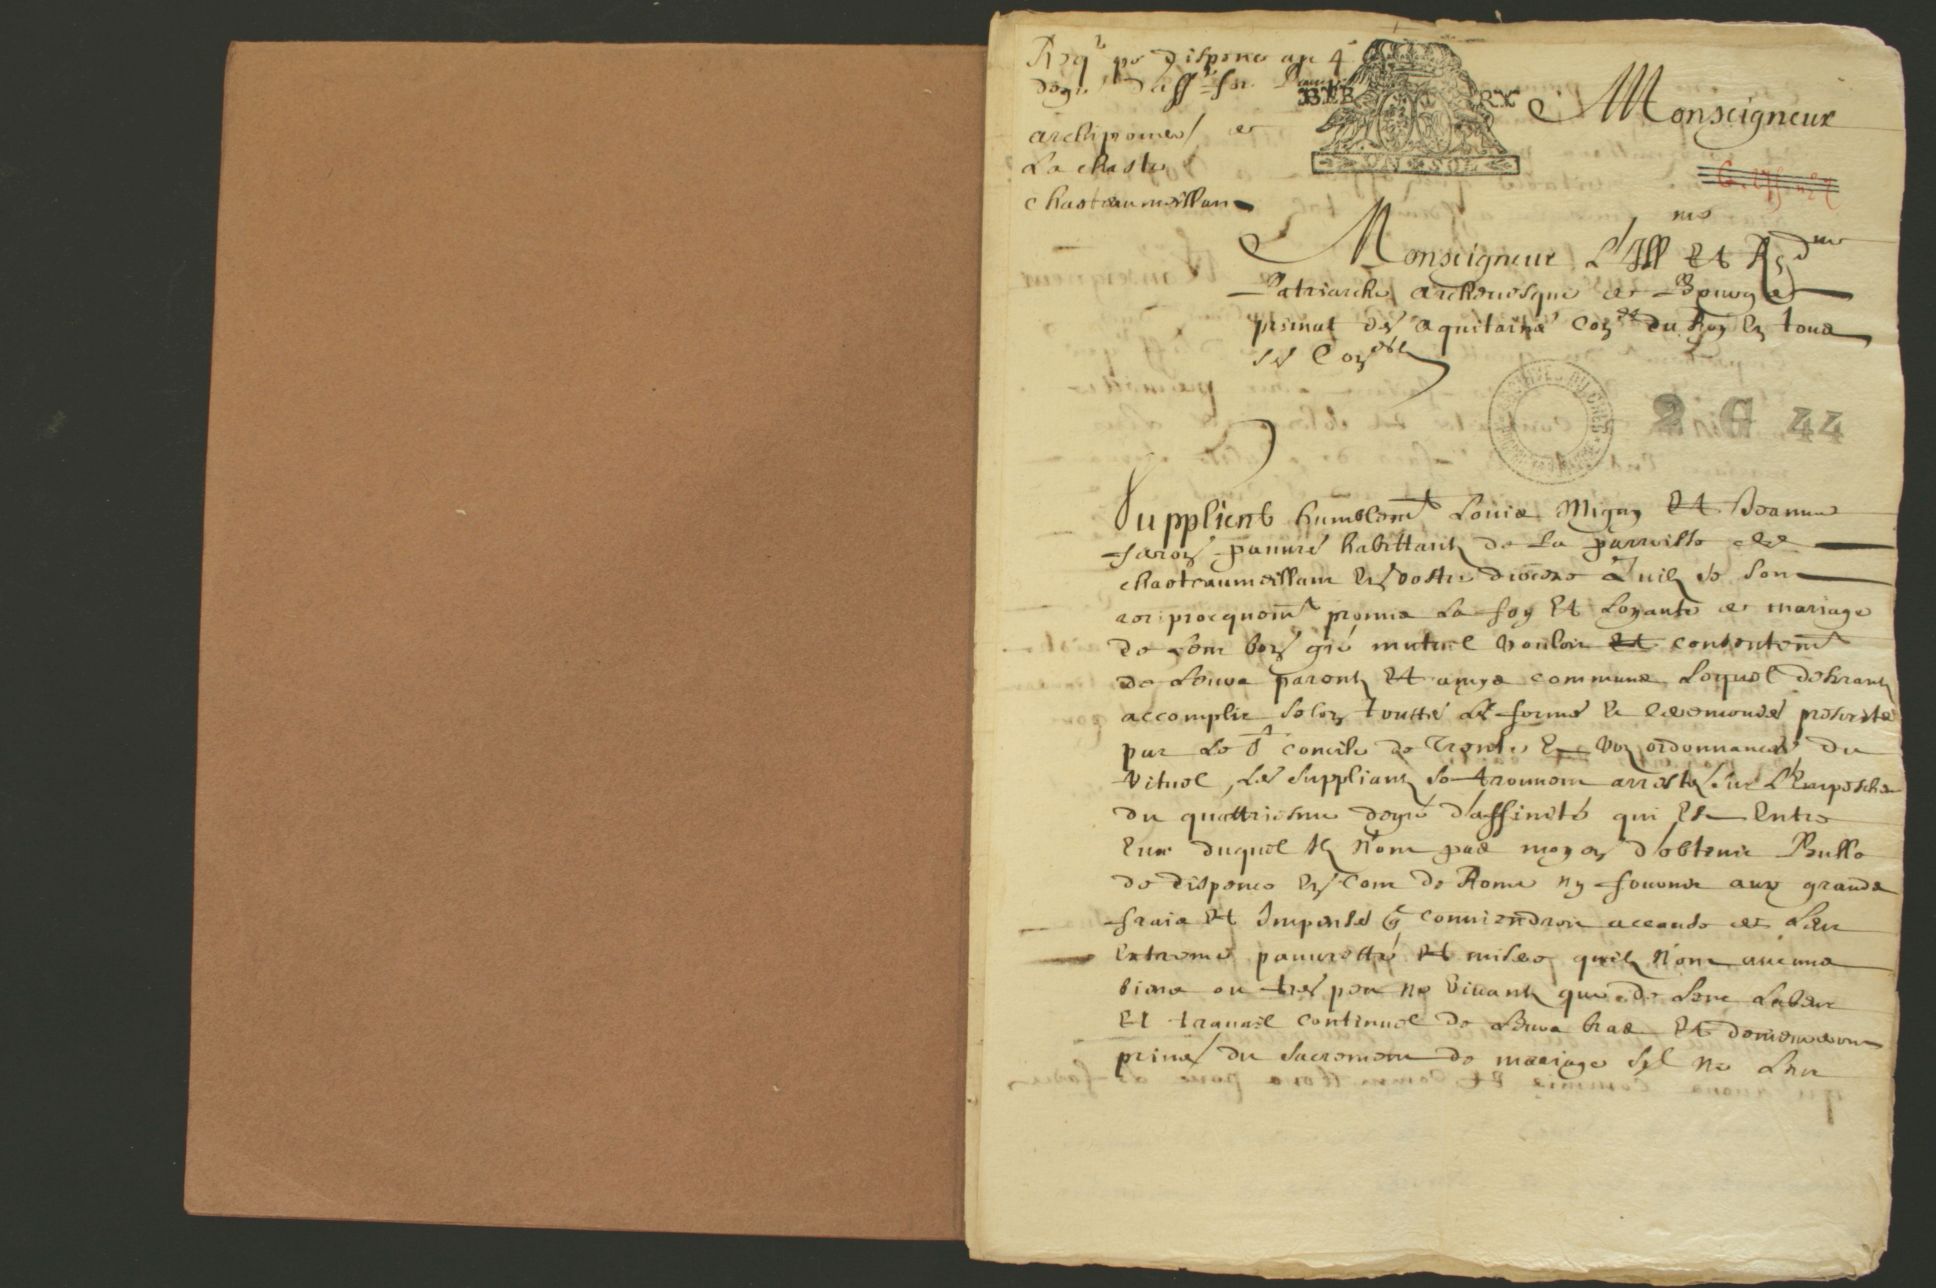 Req.te po.r dispence au 4
degré d'aff.té
BER RY
UN SOL
archiprestré de
La chastre
chasteaumeillan
Monseigneur
Monseigneur L'Ill.me Et R.dme
Patriarche, archevesque de Bourges
primat des aquitaines Con.er du Roy En tous
ses Con.eils
2 G 44
Supplient humblem.t Louis Migny Et Jeanne
pauvres habittants de La parroisse de
chasteaumeillant En vostre diocese Quils se sont
reciprocquem.t promis La foy Et Loyauté de mariage
de Leur bon gré mutuel vouloir Et consentem.t
de Leurs parents Et amys communs Lequel desirants
accomplir selon touttes Les formes Et ceremonies prescrites
par Le S.t concile de Trente Et vos ordonnances du
Rituel, Les suppliants se trouvent arrestés sur L'Empeschem
du quattriesme degré d'affinité qui Est Entre
Eux duquel Ils N'ont pas moyen d'obtenir Bulle
de dispence En Cour de Rome ny fournir aux grands
fraix Et Impenses q. conviendroit a cause de Leur
Extreme pauvretté Et misere quils N'ont aucuns
biens ou tres peu ne vivants que de Leur Labeur
Et travail continuel de Leurs bras Et demeureront
privés du sacrement de mariage syl ne Leur